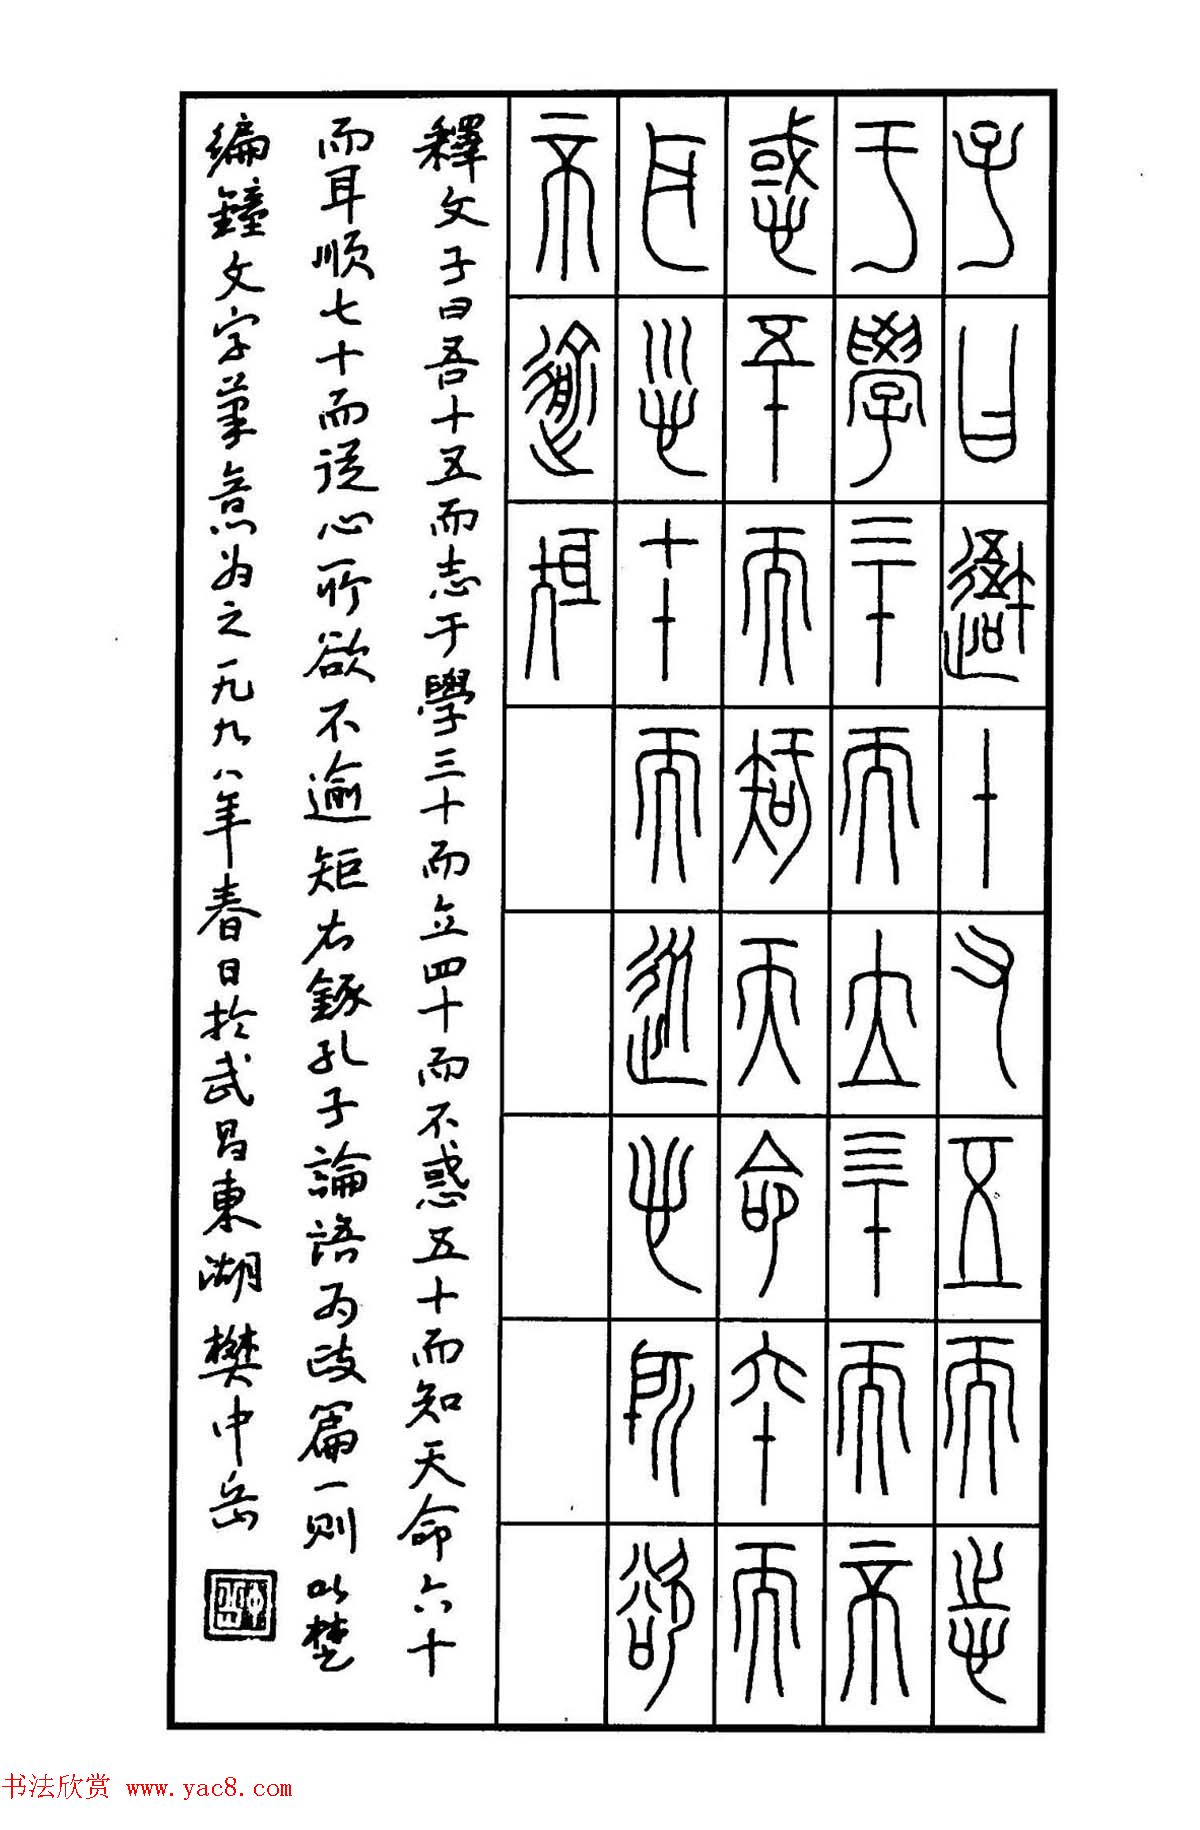 子曰吾十又五而志
于學三十而立四十而不
惑五十而知天命六十而
耳順七十而從心所欲
不逾矩
釋文子曰吾十五而志于學三十而立四十而不惑五十而知天命六十
而耳順七十而從心所欲不逾矩右錄孔子論語为政篇一則以楚
編鐘文字筆意为之一九九八年春日於武昌東湖樊中岳
中岳
书法欣赏 www.yac8.com